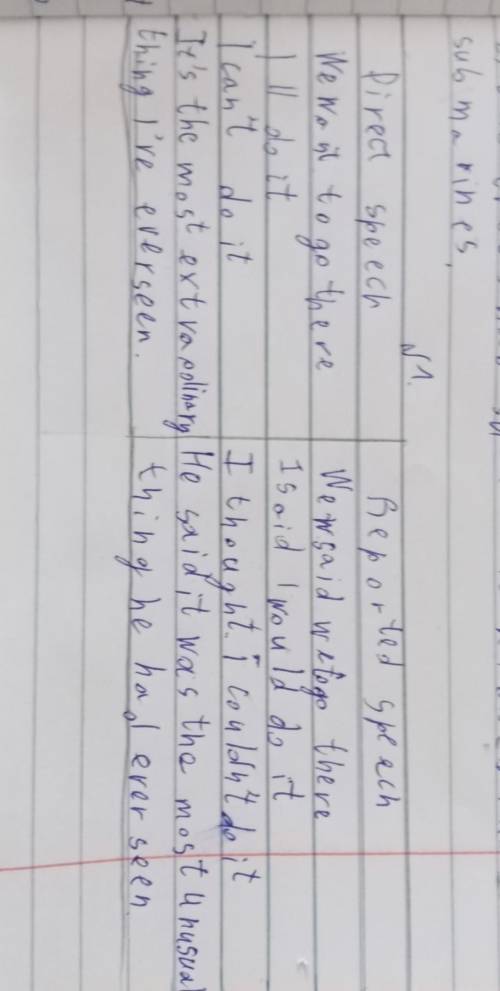 submarines,
√1.
Direct speech Reported speach
We want to go there We said we go there
I'll do it I said I would do it
I can't do it I thought I couldn't do it
It's the most extraordinary He said it was the most unusual
thing I've ever seen. thing he had ever seen.